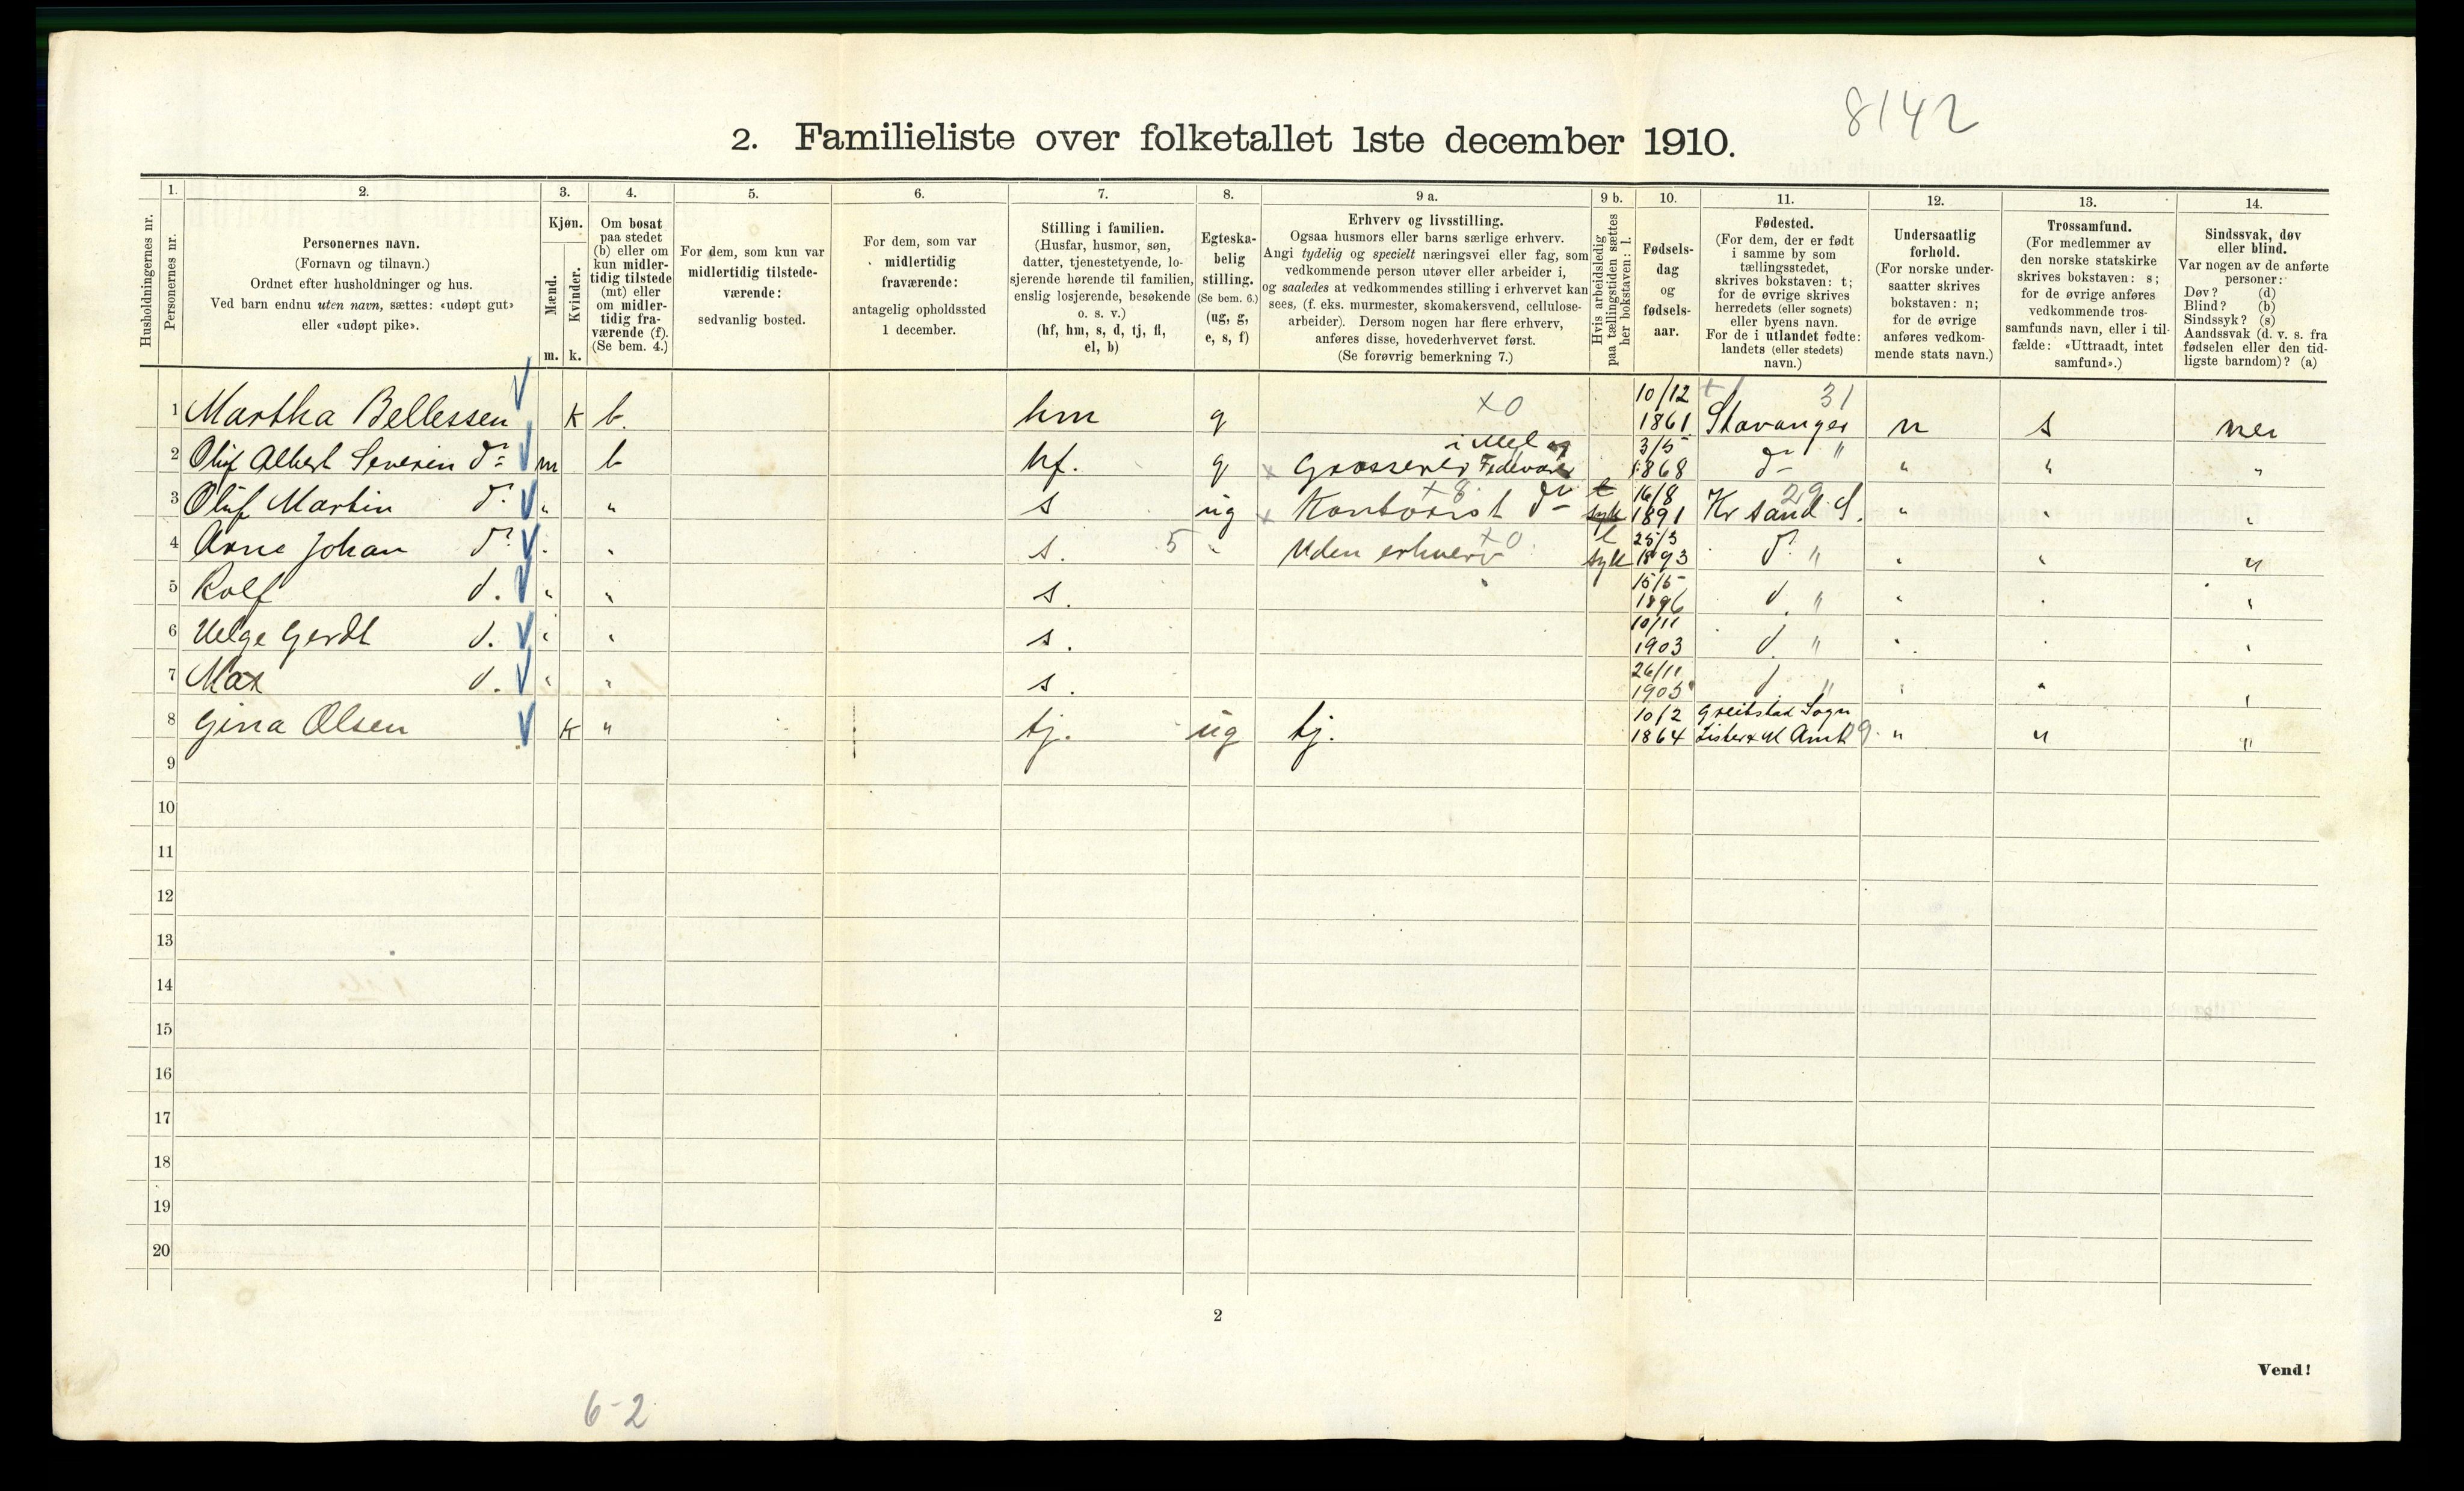 8142
2. Familieliste over folketallet 1ste december 1910.
Husholdningernes nr.
1. Personernes nr.
2. Personernes navn.
(Fornavn og tilnavn.)
Ordnet efter husholdninger og hus.
Ved barn endnu uten navn, sættes: «udøpt gut»
eller «udøpt pike».
3. Kjøn.
Mænd. m.
Kvinder. k.
4. Om bosat
paa stedet
(b) eller om
kun midler-
tidig tilstede
(mt) eller
om midler-
tidig fra-
værende (f).
(Se bem. 4.)
5. For dem, som kun var
midlertidig tilstede-
værende:
sedvanlig bosted.
6. For dem, som var
midlertidig
fraværende:
antagelig opholdssted
1 december.
7. Stilling i familien.
(Husfar, husmor, søn,
datter, tjenestetyende, lo-
sjerende hørende til familien,
enslig losjerende, besøkende
o. s. v.)
(hf, hm, s, d, tj, fl,
el, b)
8. Egteska-
belig
stilling.
(Se bem. 6.)
(ug, g,
e, s, f)
9 a. Erhverv og livsstilling.
Ogsaa husmors eller barns særlige erhverv.
Angi tydelig og specielt næringsvei eller fag, som
vedkommende person utøver eller arbeider i,
og saaledes at vedkommendes stilling i erhvervet kan
sees, (f. eks. murmester, skomakersvend, cellulose-
arbeider). Dersom nogen har flere erhverv,
anføres disse, hovederhvervet først.
(Se forøvrig bemerkning 7.)
9 b. Hvis arbeidsledig
paa tællingstiden sættes
her bokstaven: l.
10. Fødsels-
dag
og
fødsels-
aar.
11. Fødested.
(For dem, der er født
i samme by som
tællingsstedet,
skrives bokstaven: t;
for de øvrige skrives
herredets (eller sognets)
eller byens navn.
For de i utlandet fødte:
landets (eller stedets)
navn.)
12. Undersaatlig
forhold.
(For norske under-
saatter skrives
bokstaven: n;
for de øvrige
anføres vedkom-
mende stats navn.)
13. Trossamfund.
(For medlemmer av
den norske statskirke
skrives bokstaven: s;
for de øvrige anføres
vedkommende tros-
samfunds navn, eller i til-
fælde: «Uttraadt, intet
samfund».)
14. Sindssvak, døv
eller blind.
Var nogen av de anførte
personer:
Døv? (d)
Blind? (b)
Sindssyk? (s)
Aandssvak (d. v. s. fra
fødselen eller den tid-
ligste barndom)? (a)
1 Martha Bellessen k b. hm g x0 10/12 1861 Stavanger 31 n s nei
2 Oluf Albert Severin do m b hf. g Grosserer i Mel og Fedevarer 3/5 1868 do " " " "
3 Oluf Martin do " " s ug Kontorist do x8 l syk 16/8 1891 Kr sand S. 29 " " "
4 Arne Johan do " " s. 5 " Uden erhverv x0 l syk 25/3 1893 do " " " "
5 Rolf d. " " s. 15/5 1896 d. " " " "
6 Helge Gerdt d. " " s. 10/11 1903 d. " " " "
7 Max d. " " s. 26/11 1905 d " " " "
8 Gina Olsen k " tj. ug tj. 10/2 1864 Greibstad Sogn Lister & M Amt 9. " " "
9
10
11
12
13
14
15
16
17
18
19
20
2
Vend!
6-2